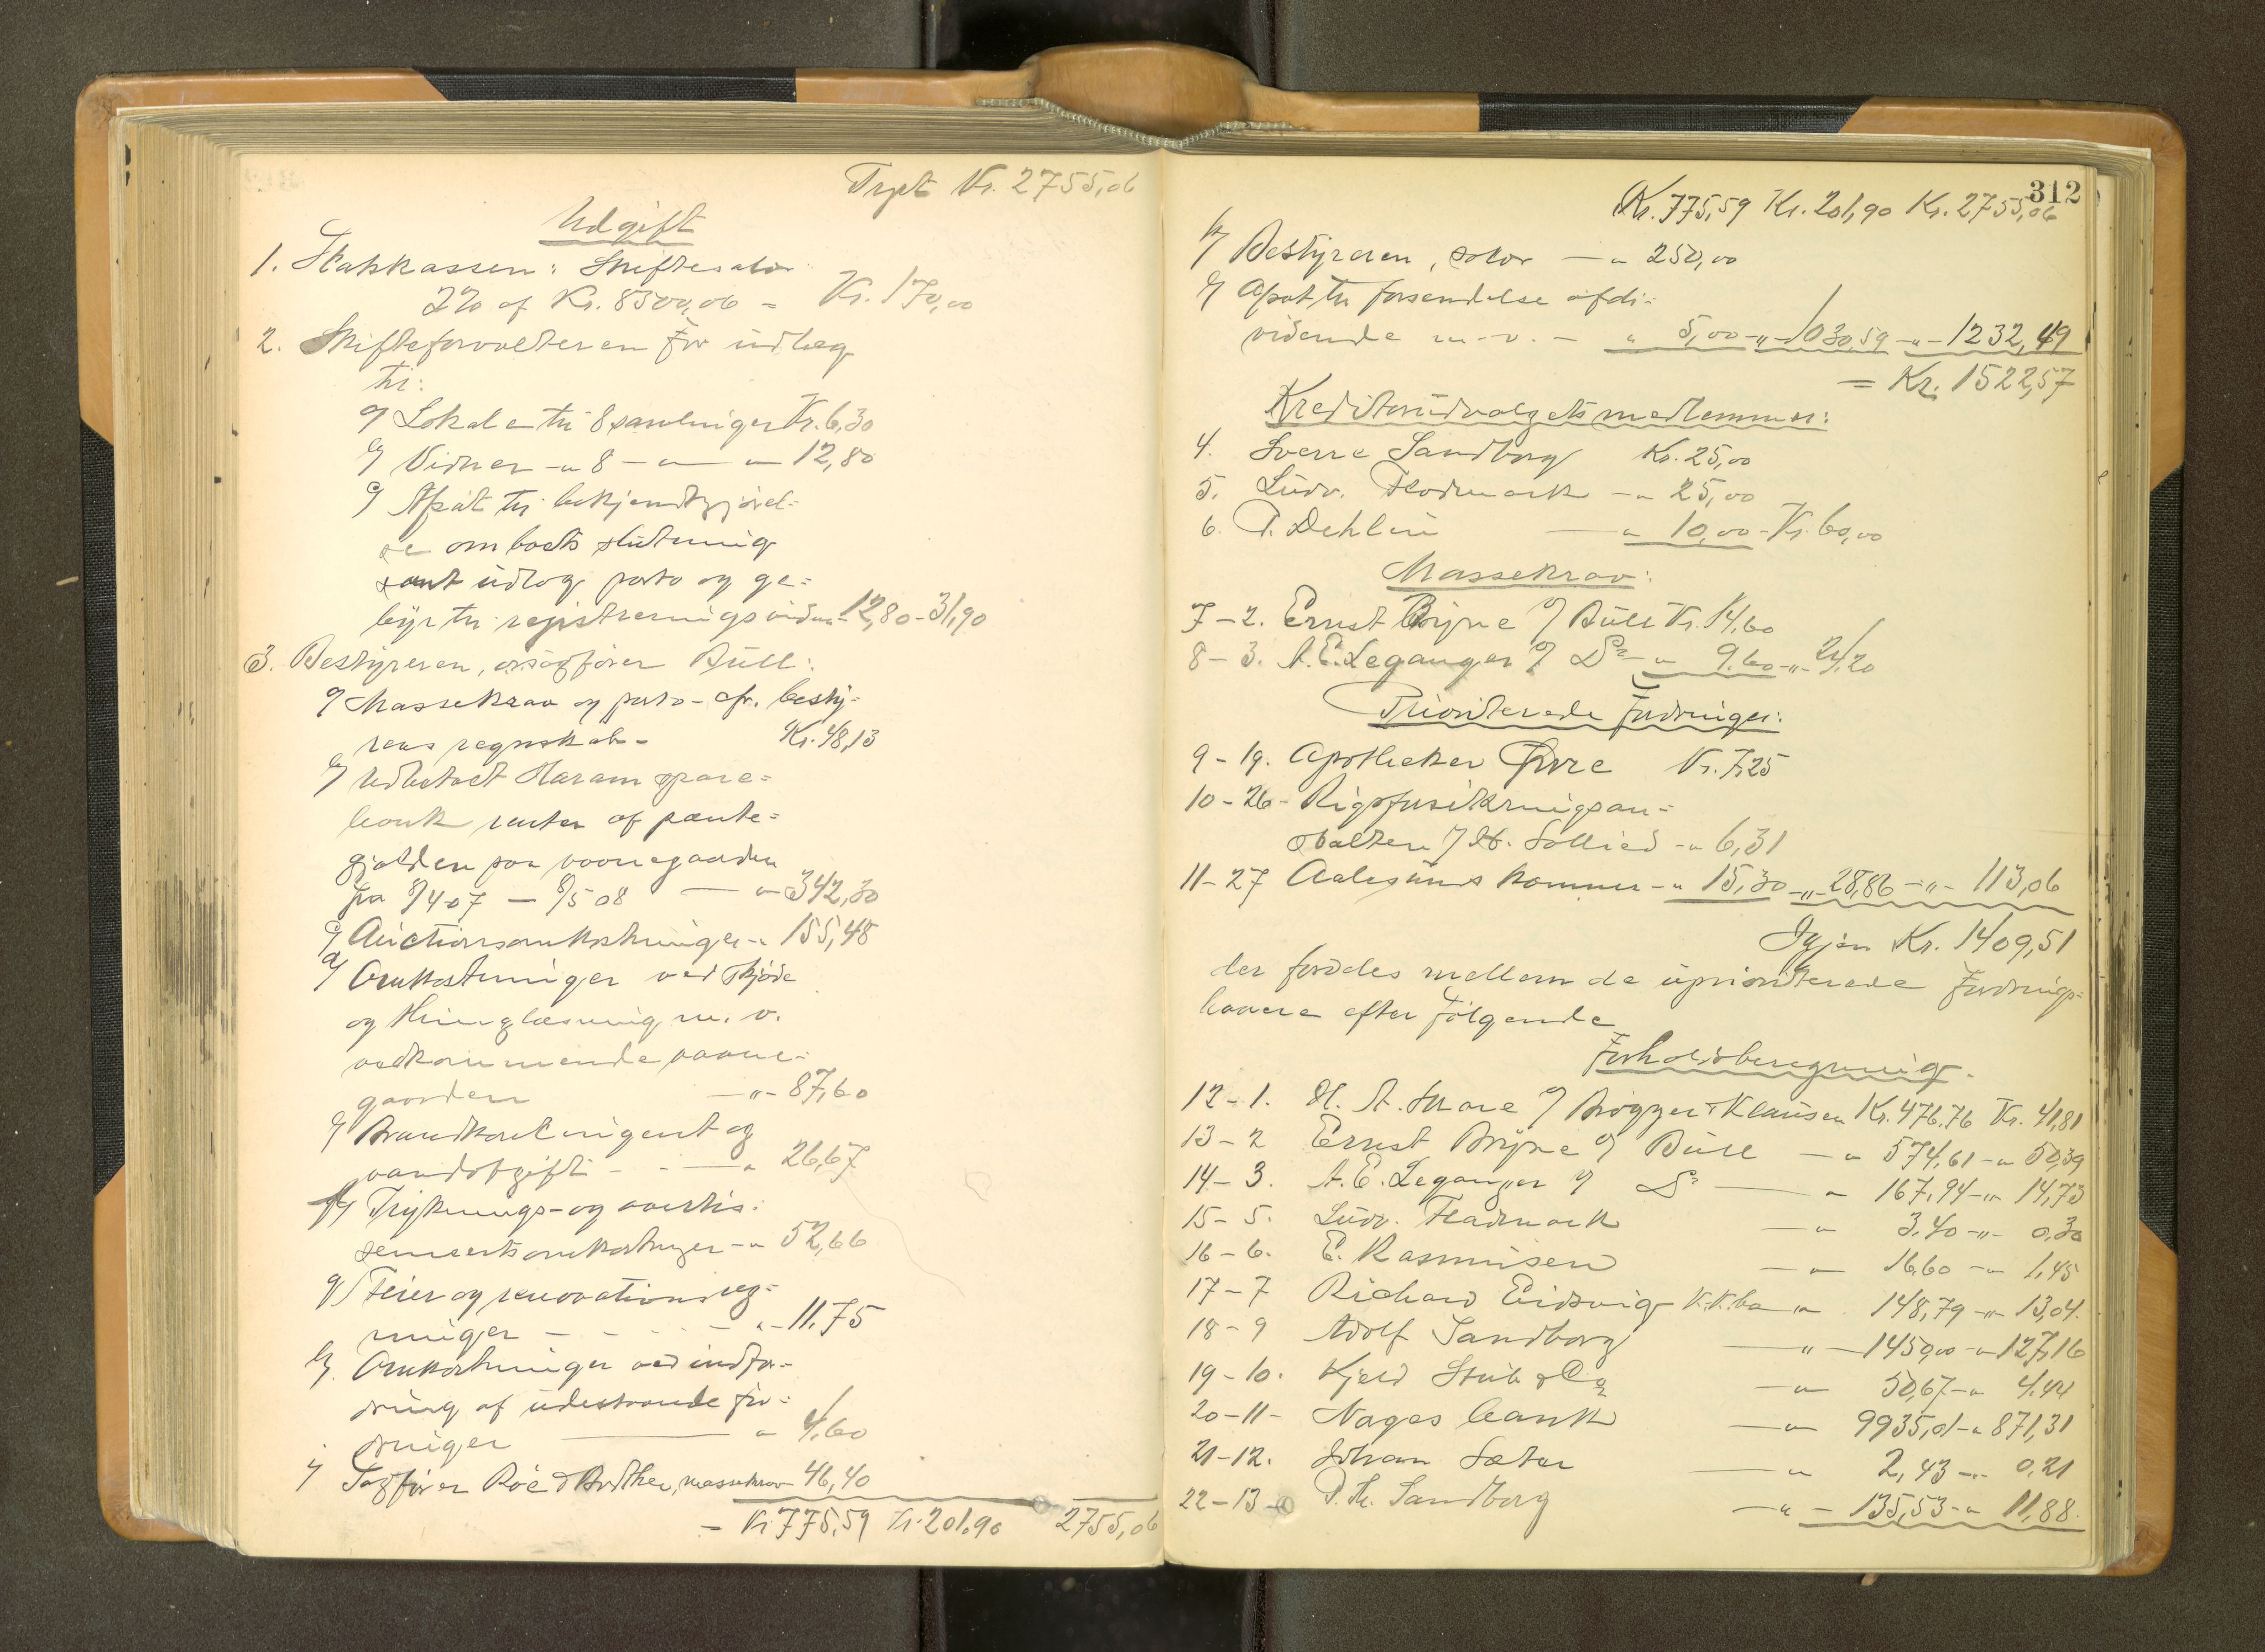 Trpt Kr. 2755,06
Udgift
1. Statskassen: Skifteafår
2% af Kr. 8500,00 = Kr. 170,00
2. Skifteforvalteren for udlæg
til:
a/ Lokale til 8 samlinger Kr. 6,30
b/ Vidner -"- 8 -"- -"- 12,80
c/ Afsat til bekjendtgjørel-
se om boets slutning
samt udlæg porto og ge=
byr til registreringsvidner - 12,80 - 31,90
3. Bestyreren, o.r.sagfører Büll:
a/ Massekrav og porto - cfr. besty=
rens regnskab - Kr. 48,13
b/ Udbetalt Haram spare=
bank renter af pante=
gjælden paa vaaningsgaarden
fra 8/4 07 - 8/5 08 - " - 342,30
c/ Auctionsomkostninger - " 155,48
d/ Omkostninger ved skjøde
og thinglæsning m. v.
vedkommende vaane-
gaarden - " - 87,60
e/ Brandkontingent og
vandafgift - - - " 26,67
f/ Tryknings- og avertis-
sementsomkostninger - " 52,66
g/ Feier og renovationsreg=
ninger - - - - " - 11,75
h/ Omkostninger ved indfor-
dring af udestaaende for=
dringer - " 4,60
i/ Sagfører Roé & Brdther, massekrav 46,40
- Kr. 775,59 Kr. 201,90 2755,06
312
Kr. 775,59 Kr. 201,90 Kr. 2755,06
k/ Bestyreren, salær - " 250,00
l/ Afsat til forsendelse af di-
vidende m. v. - " 5,00 - " - 1030,59 - " - 1232,49
= Kr. 1522,57
Kreditorudvalgets medlemmer:
4. Sverre Sandborg Kr. 25,00
5. Ludv. Flodmark - " 25,00
6. P. Dehlin - " 10,00 - Kr. 60,00
Massekrav:
7 - 2. Ernst Brÿne v/ Büll Kr. 14,60
8 - 3. A. E. Leganger v/ Do - " 9,60 - " - 24,20
Prioriterede Fordringer:
9 - 19. Apotheker Øvre Kr. 7,25
10 - 26 - Rigsforsikringsan=
stalten v/ H. Sollied - " 6,31
11 - 27 Aalesunds kommune - " 15,30 - " - 28,86 - " - 113,06
Igjen Kr. 1409,51
der fordeles mellem de uprioriterede Fordrings=
havere efter følgende
Forholdsberegning.
12 - 1. H. A. Moe v/ Brøgger & Klausen Kr. 476,76 Kr. 41,81
13 - 2 Ernst Brÿne v/ Büll - " 574,61 - " 50,39
14 - 3. A. E. Leganger v/ Do - " 167,94 - " - 14,73
15 - 5. Ludv. Flodmark - " 3,40 - " - 0,30
16 - 6. E. Rasmussen - " 16,60 - " 1,45
17 - 7 Richard Eidsvig K.K. bo " 148,79 - " - 13,04
18 - 9 Adolf Sandborg - " - 1450,00 - " - 127,16
19 - 10. Kjeld Stub & Co - " 50,67 - " 4,44
20 - 11 - Nages bank - " 9935,01 - " 871,31
21 - 12. Johan Sæter - " 2,43 - " - 0,21
22 - 13 - P. Th. Sandborg - " - 135,53 - " 11,88